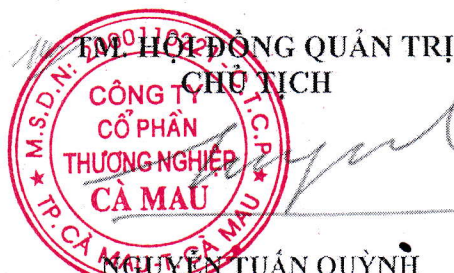 TM. HỘI ĐỒNG QUẢN TRỊ
CHỦ TỊCH
M.S.D.N:
C.T.C.P
CÔNG TY
CỔ PHẦN
THƯƠNG NGHIỆP
CÀ MAU
TP. CÀ MAU - T. CÀ MAU
NGUYỄN TUẤN QUỲNH